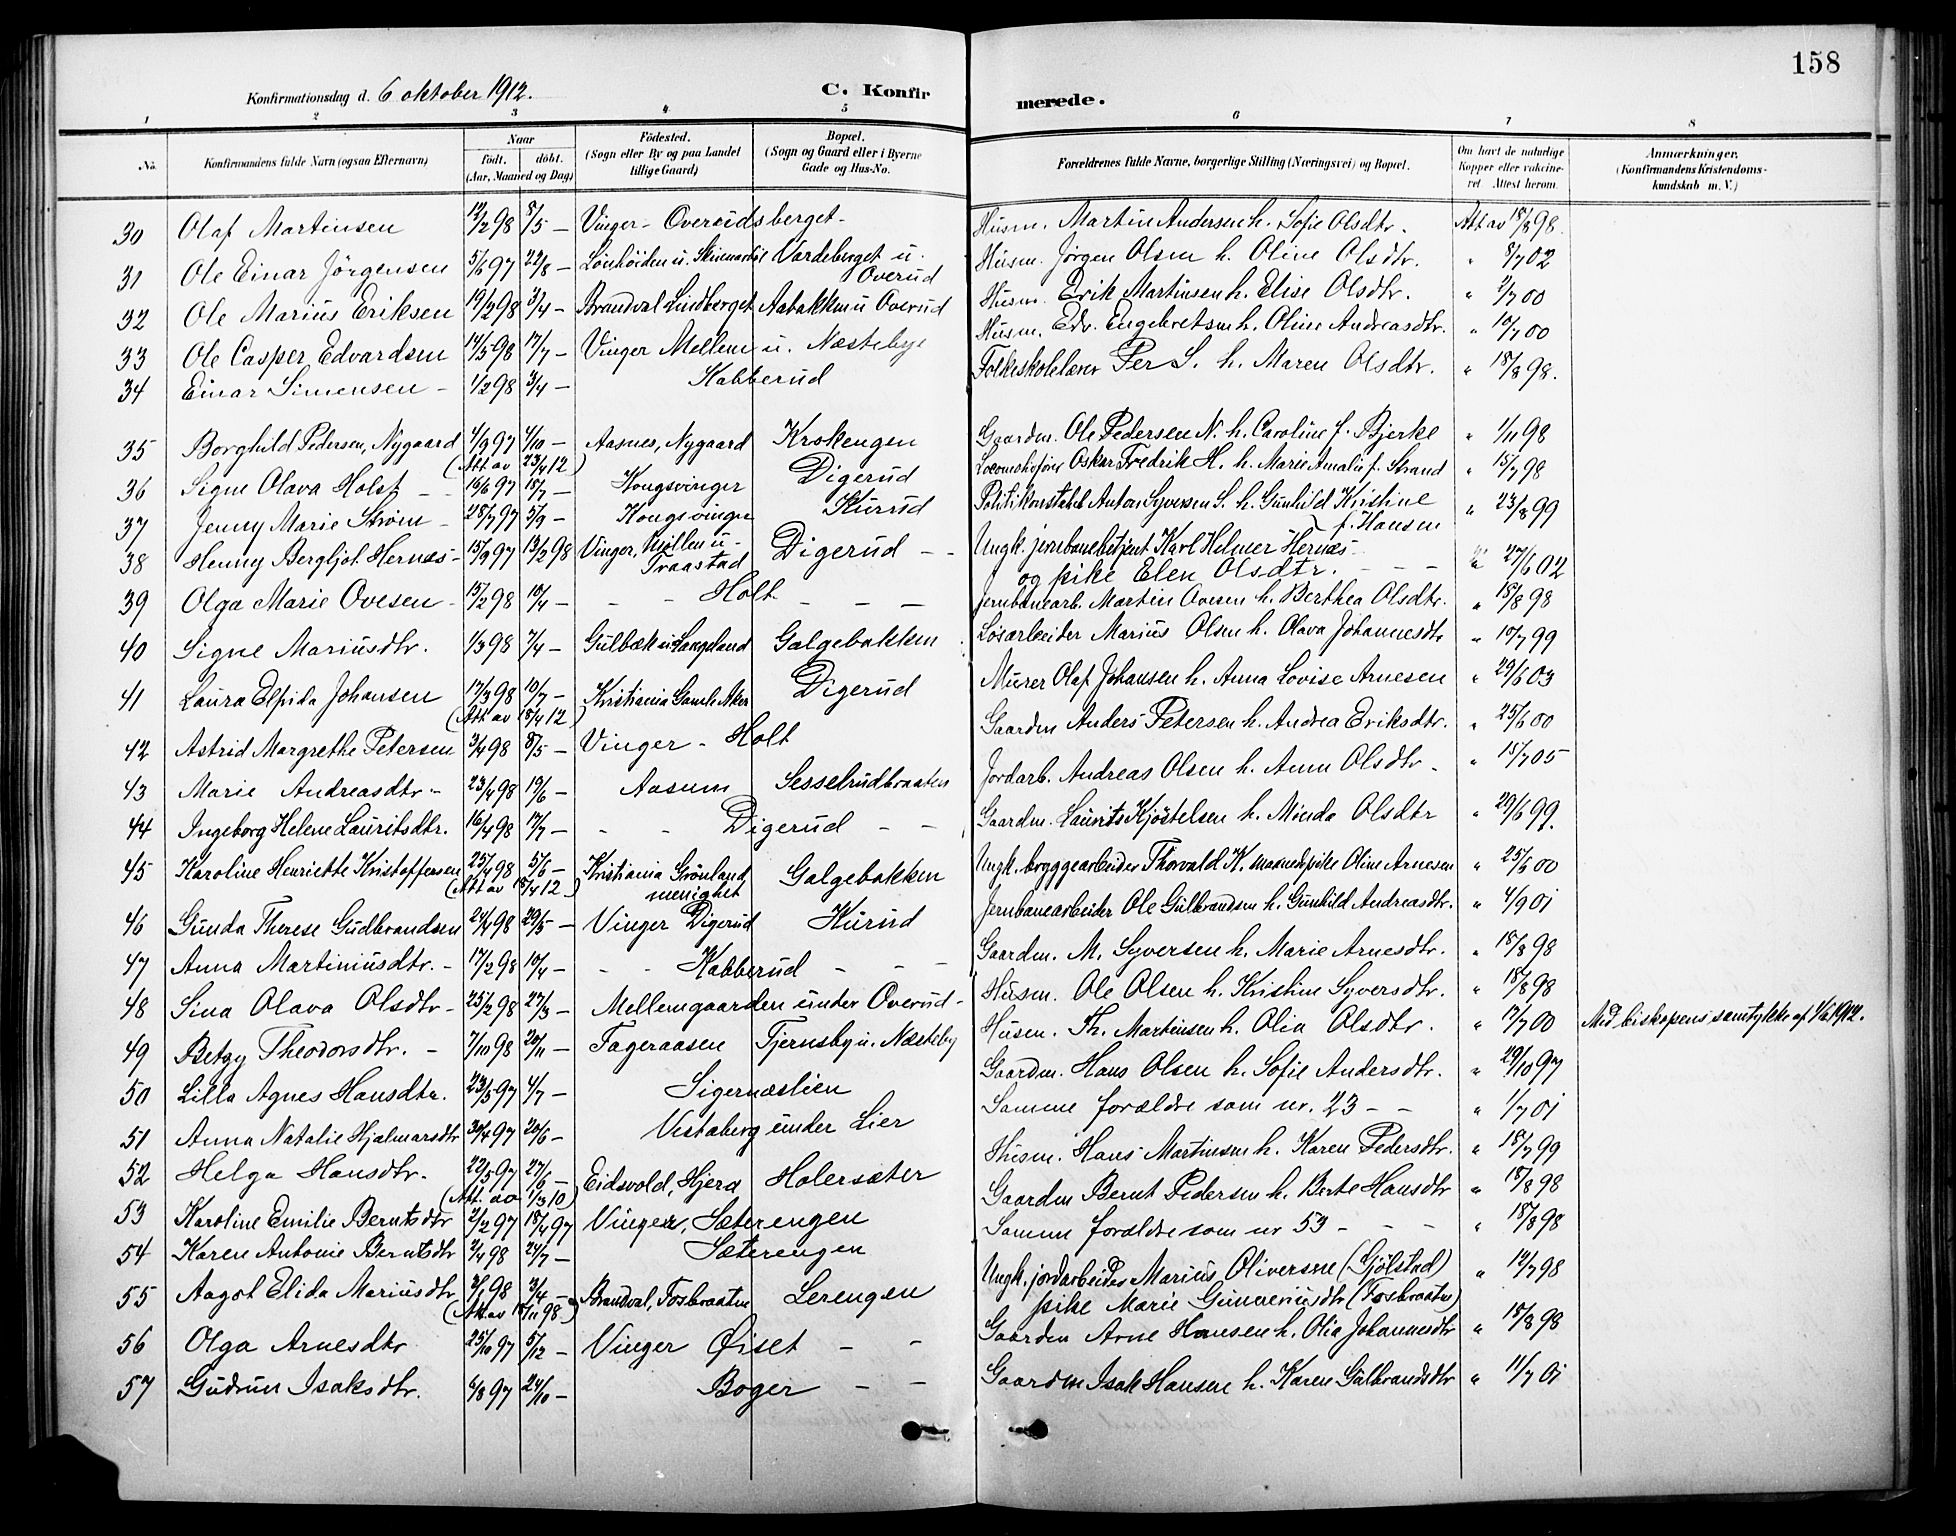 158
Konfirmationsdag d. 6 oktober 1912.
C. Konfirmerede.
1 2 3 4 5 6 7 8
No.
Konfirmandens fulde Navn (ogsaa Efternavn)
Naar
födt. döbt.
(Aar, Maaned og Dag)
Födested.
(Sogn eller By og paa Landet
tillige Gaard)
Bopæl.
(Sogn og Gaard eller i Byerne
Gade og Hus-No.
Forældrenes fulde Navne, borgerlige Stilling (Næringsvei) og Bopæl.
Om havt de naturlige
Kopper eller vakcineret
Attest herom.
Anmærkninger.
(Konfirmandens Kristendomskundskab
m. V.)
30 Olaf Martinsen 12/2 98 8/5 — Vinger - Overudsberget - Husm. Martin Andersen h. Sofie Olsdtr. Att av 18/8 98.
31 Ole Einar Jörgensen 5/6 97 22/8 — Vardeberget u. Overud Husm. Jörgen Olsen h. Oline Olsdtr. " 8/7 02
32 Ole Marius Eriksen 19/2 98 3/4 — Brandval Lindberget Aabakken u Overud Husm. Erik Martinsen h. Elise Olsdtr. " 2/7 00
33 Ole Casper Edvardsen 14/5 98 17/7 — Vinger Mellem u. Næsteby Husm. Edv. Engebretsen h. Oline Andreasdtr. " 10/7 00
34 Einar Simensen - 1/2 98 3/4 — Kabberud Folkeskolelærer Per S. h. Maren Olsdtr. " 18/8 98.
35 Borghild Pedersen, Nygaard 4/9 97 4/10 — Aasnes, Nygaard Krokengen Gaardm. Ole Pedersen N. h. Caroline f. Bjerke " 1/11 98
(Att av 23/4 12)
36 Signe Olava Holst - - 16/6 97 18/7 — Kongsvinger Digerud Locomotivförer Oskar Fredrik H. h. Marie Amalie f. Strand " 15/7 98
37 Jenny Marie Ström - 28/7 97 5/9 — Kongsvinger Kurud Politikonstabel Anton Syversen S. h. Gunhild Kristine f. Hansen " 23/8 99
38 Henny Bergljot Hernæs - 15/9 97 13/2 98 Vinger, Traastad Digerud - - Ungk. jernbanebetjent Karl Helmer Hernæs -
og pike Elen Olsdtr. - - - " 27/6 02
39 Olga Marie Ovesen - 15/2 98 10/4 — - - Holt - - - Jernbanearb. Martin Ovesen h. Berthea Olsdtr. " 18/8 98
40 Signe Mariusdtr. 1/3 98 7/4 — Gulbæk u Langeland Galgebakken Lösarbeider Marius Olsen h. Olava Johannesdtr " 10/7 99
41 Laura Elfrida Johansen 17/3 98 10/7 — Kristiania Gamle Aker Digerud Murer Olaf Johansen h. Anna Lovise Arnesen " 29/6 03
(Att av 18/4 12)
42 Astrid Margrethe Petersen 3/4 98 8/5 — Vinger - Holt Gaardm Anders Petersen h. Andrea Eriksdtr. " 25/6 00
43 Marie Andreasdtr - 23/4 98 19/6 — Aasum Sesselrudbraaten Jordarb. Andreas Olsen h. Anne Olsdtr - " 15/7 05
44 Ingeborg Helene Lauritsdtr. 16/4 98 17/7 — - - Digerud - - Gaardm. Laurits Kjöstelsen h. Minda Olsdtr " 29/6 99.
45 Karoline Henriette Kristoffersen 25/4 98 5/6 — Kristiania Grönland menighet Galgebakken Ungk. bryggearbeider Thorvald K. Oline Arnesen " 25/5 00
(Att av 18/4 12)
46 Gunda Therese Gudbrandsen 24/4 98 29/5 — Vinger Digerud Kurud Jernbanearbeider Ole Gulbrandsen h. Gunhild Andreasdtr. " 4/9 01
47 Anna Martiniusdtr. - 17/2 98 10/4 — - - Kabberud - - - Gaardm. M. Syversen h. Marie Arnesdtr. " 18/8 98
48 Sina Olava Olsdtr - 25/2 98 27/3 — Mellemgaarden under Overud - Husm. Ole Olsen h. Kristine Syversdtr. " 18/8 98
49 Betzy Theodorsdtr. - 7/10 98 20/11 — Fageraasen Tjernsby u. Næsteby Husm. Th. Martinsen h. Olia Olsdtr. " 17/7 00 Med biskopens samtykke af 1/6 1912.
50 Lilla Agnes Hansdtr. 23/5 97 4/7 — Sigernæslien Gaardm. Hans Olsen h. Sofie Andersdtr. " 29/10 97
51 Anna Natalie Hjalmarsdtr 30/4 97 20/6 — Vestaberg under Lier Samme forældre som nr. 23 - - " 1/7 01
52 Helga Hansdtr. 22/5 97 27/6 — Eidsvold, Hjera Holersæter Husm. Hans Martinsen h. Karen Pedersdtr. " 18/7 99
(Att. av 1/3 10)
53 Karoline Emilie Berntsdtr 2/2 97 18/4 97 Vinger, Sæterengen Gaardm Bernt Pedersen h. Berte Hansdtr " 18/8 98
54 Karen Antonie Berntsdtr 2/4 98 24/7 — Sæterengen Samme forældre som nr 53 - - - " 18/8 98
55 Aagot Elida Mariusdtr 3/1 98 3/4 — Brandval, Fosbraaten Lerengen Ungk. jordarbeider Marius Oliversen (Gjölstad) " 12/7 98
(Att av 18/11 98) pike Marie Gunneriusdtr (Fosbraaten)
56 Olga Arnesdtr 25/10 97 5/12 — Vinger Øiset - - Gaardm Arne Hansen h. Olia Johannesdtr " 18/8 98
57 Gudrun Isaksdtr. 6/8 97 24/10 — Boger - - Gaardm Isak Hansen h. Karen Gulbrandsdtr " 11/7 01